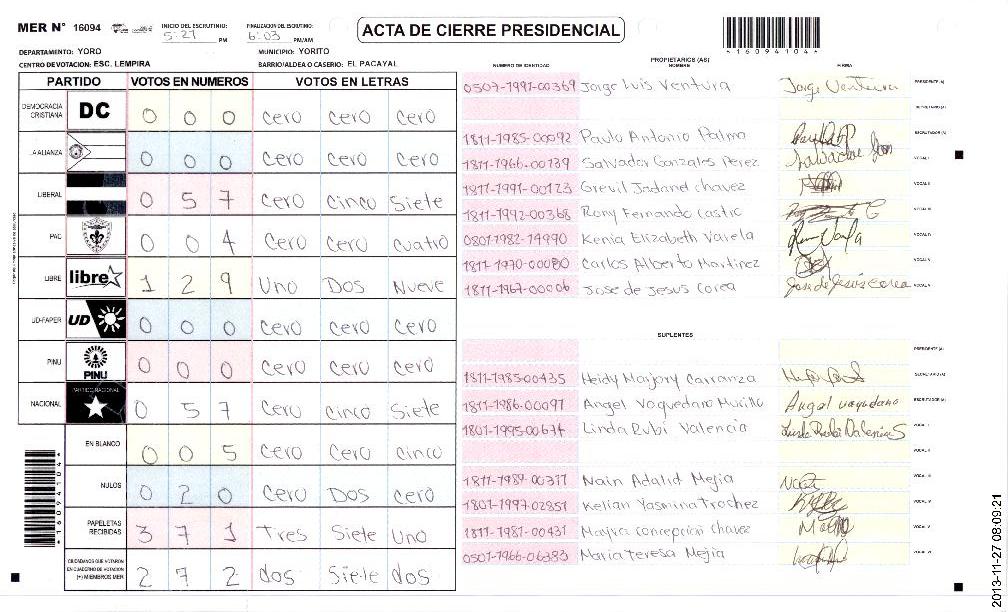 MER N° 16094
INICIO DEL ESCRUTINIO: 5:27 PM
FINALIZACION DEL ESCRUTINIO: 6:03 PM/AM
ACTA DE CIERRE PRESIDENCIAL
*16094104*
DEPARTAMENTO: YORO
MUNICIPIO: YORITO
CENTRO DE VOTACION: ESC. LEMPIRA
BARRIO/ALDEA O CASERIO: EL PACAYAL
PARTIDO VOTOS EN NUMEROS VOTOS EN LETRAS
DEMOCRACIA CRISTIANA DC 0 0 0 cero cero cero
LA ALIANZA 0 0 0 cero cero cero
LIBERAL 0 5 7 cero cinco siete
PAC 0 0 4 cero cero cuatro
LIBRE libre 1 2 9 Uno Dos Nueve
UD-FAPER UD 0 0 0 cero cero cero
PINU PINU 0 0 0 cero cero cero
NACIONAL PARTIDO NACIONAL 0 5 7 cero cinco siete
EN BLANCO 0 0 5 cero cero cinco
NULOS 0 2 0 cero Dos cero
PAPELETAS RECIBIDAS 3 7 1 Tres Siete Uno
CIUDADANOS QUE VOTARON EN CUADERNO DE VOTACION (+) MIEMBROS MER 2 7 2 dos Siete dos
*16094104*
PROPIETARIOS (AS)
NUMERO DE IDENTIDAD NOMBRE FIRMA
0507-1991-00369 Jorge Luis Ventura Jorge Ventura PRESIDENTE (A)
SECRETARIO (A)
1811-1985-00092 Paulo Antonio Palma ESCRUTADOR (A)
1811-1966-00139 Salvador Gonzales Perez VOCAL I
1811-1991-00123 Greuil Jadand chavez VOCAL II
1811-1992-00368 Rony Fernando Castro VOCAL III
0801-1982-14990 Kenia Elizabeth Varela VOCAL IV
1811-1970-00080 Carlos Alberto Martinez VOCAL V
1811-1967-00006 Jose de Jesus Corea Jose de Jesús corea VOCAL VI
SUPLENTES
PRESIDENTE (A)
1811-1985-00435 Heidy Marjory Carranza SECRETARIO (A)
1811-1986-00097 Angel Vaquedano Murillo Angel vaquedano ESCRUTADOR (A)
1801-1995-00674 Linda Rubi Valencia VOCAL I
VOCAL II
1811-1989-00317 Nain Adalid Mejia VOCAL III
1807-1997-02851 Kelian Yasmina Trochez VOCAL IV
1811-1981-00431 Mayra concepcion chavez VOCAL V
0501-1966-06383 Maria Teresa Mejia VOCAL VI
2013-11-27 08:09:21